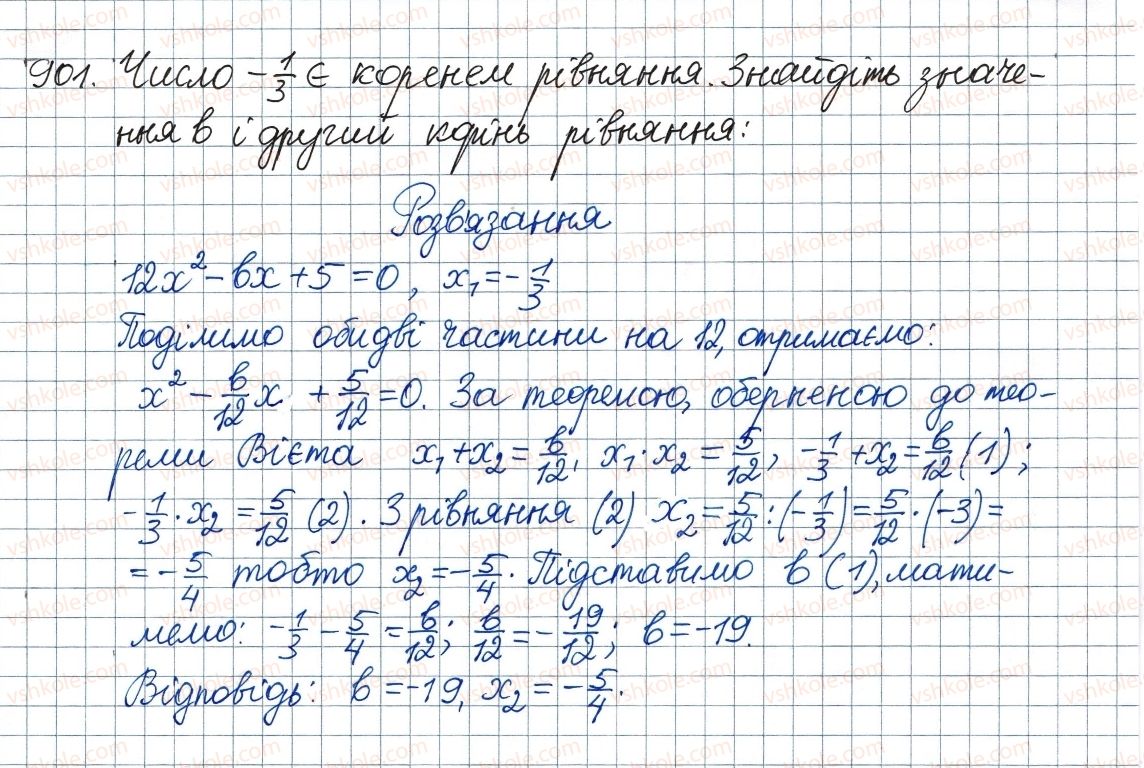 901. Число -1/3 є коренем рівняння. Знайдіть значе-
ння в і другий корінь рівняння:
Розвязання
12x² - вx + 5 = 0, x₁ = -1/3
Поділимо обидві частини на 12, отримаємо:
x² - в/12 x + 5/12 = 0. За теоремою, оберненою до тео-
реми Вієта x₁ + x₂ = в/12, x₁ · x₂ = 5/12, -1/3 + x₂ = в/12 (1);
-1/3 · x₂ = 5/12 (2). З рівняння (2) x₂ = 5/12 : (-1/3) = 5/12 · (-3) =
= -5/4 тобто x₂ = -5/4. Підставимо в (1), мати-
мемо: -1/3 - 5/4 = в/12; в/12 = -19/12; в = -19.
Відповідь: в = -19, x₂ = -5/4.